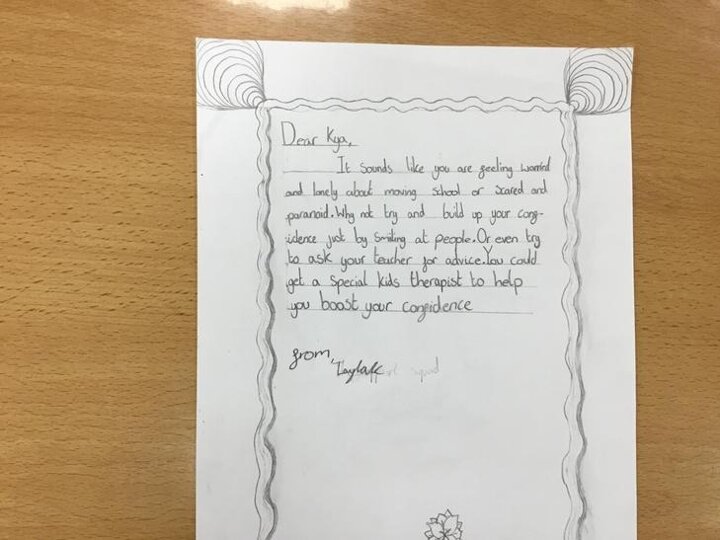 Dear Kya,
It sounds like you are feeling worried
and lonely about moving school or scared and
paranoid. Why not try and build up your conf-
idence just by smiling at people. Or even try
to ask your teacher for advice. You could
get a special kids therapist to help
you boost your confidence
from,
squad